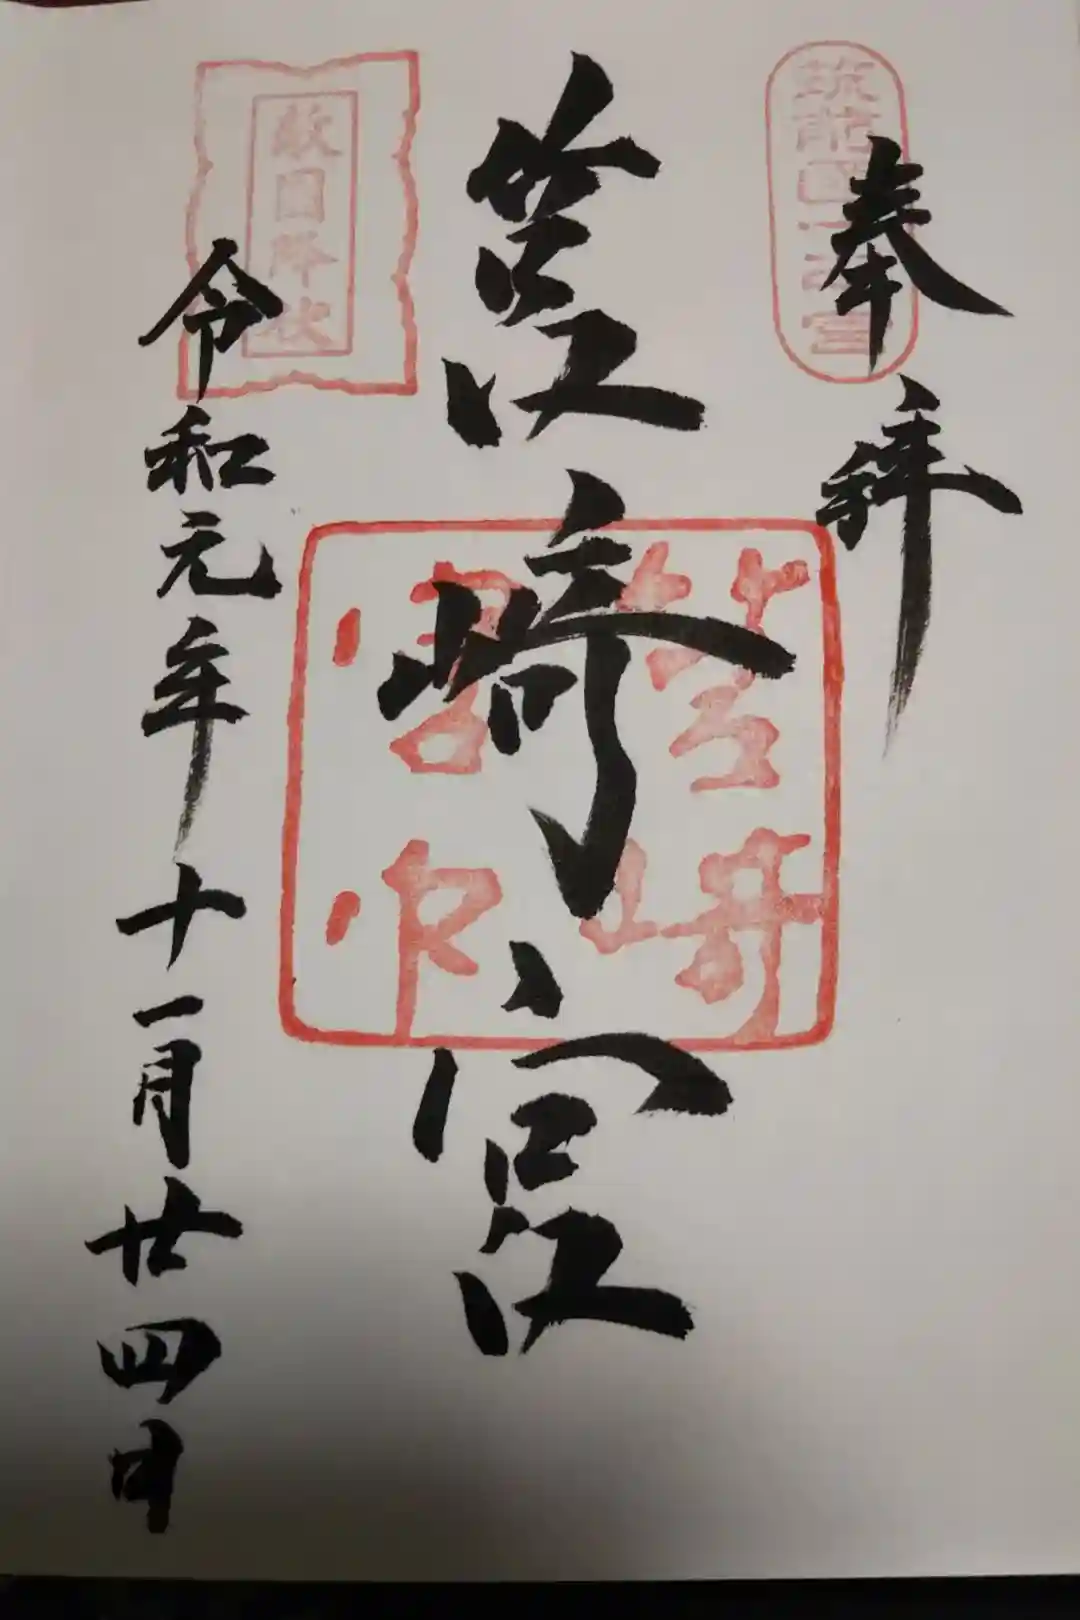 奉拝
筑前國一之宮
筥崎宮
筥崎宮印
敵国降伏
令和元年十一月廿四日